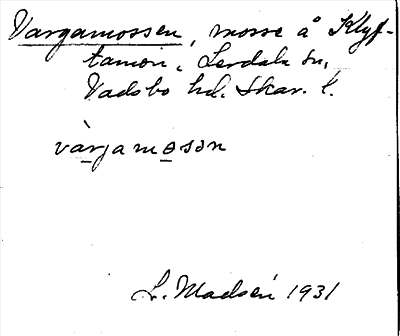 Vargamossen, mosse å Klyf-
tamon i Lerdala sn,
Vadsbo hd. Skar. l.
vàrjamosən
L. Madsén 1931